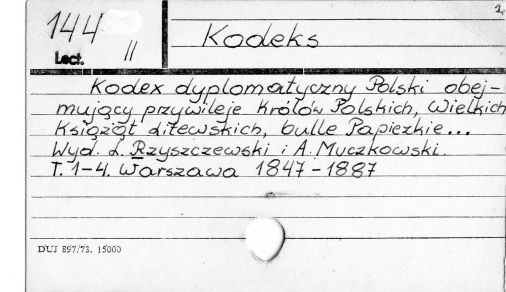 1,
144
Lect. II
Kodeks
Kodex dyplomatyczny Polski obej-
mujący przywileje Królów Polskich, Wielkich
Książąt Litewskich, bulle Papiezkie...
Wyd. L. Rzyszczewski i A. Muczkowski.
T. 1-4. Warszawa 1847-1887
DUJ 897/73. 15000